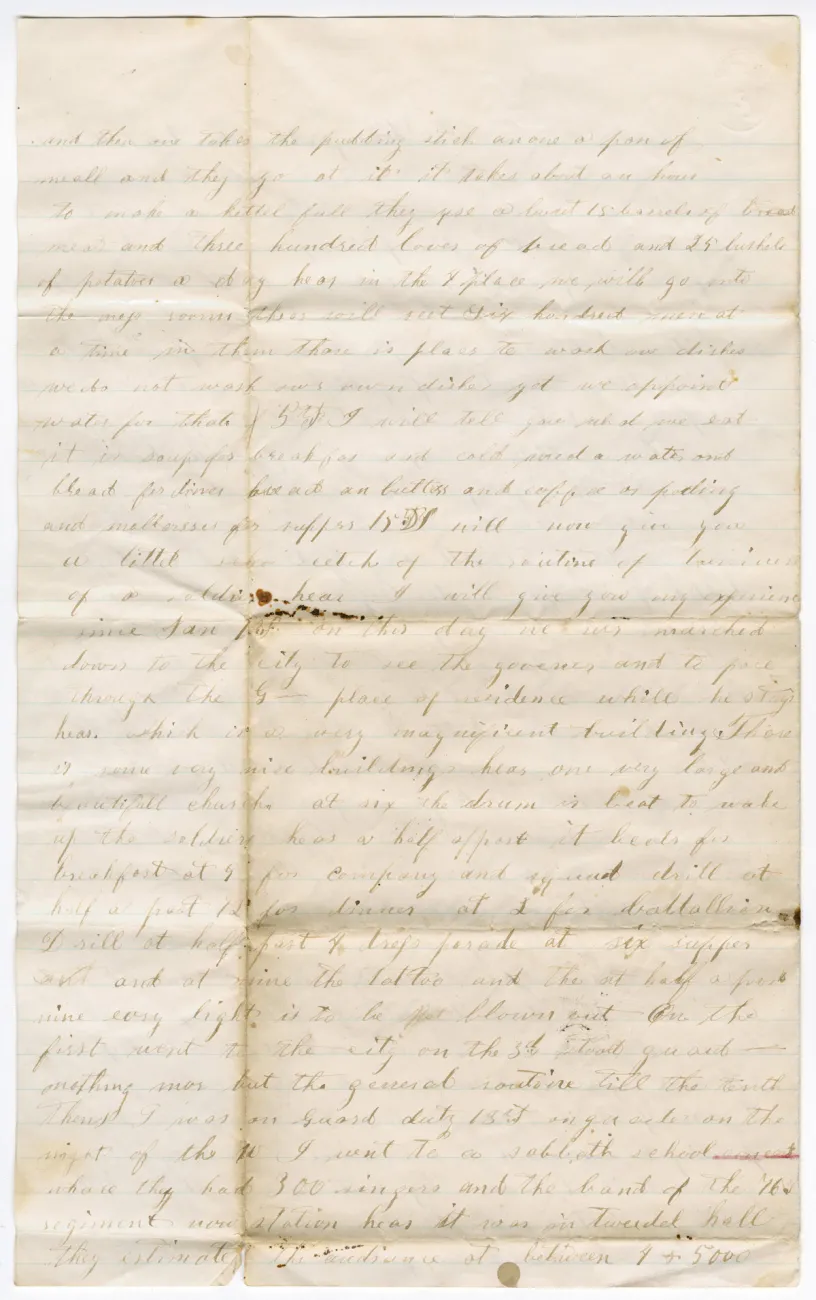 and then one takes the pudding stick anone a pan of
meall and they go at it it takes about an hour
to make a kettel full they use a bout 15 barrels of
meat and three hundred loves of bread and 25 bushels
of potatoes a day hear in the 4 place we will go into
the mess rooms thear will eet six hundred men at
a time in them thare is place to wash our dishes
we do not wash our own dishes yet we appoint
for that 5th I will tell you what we eat
it is soup for breakfas and cold meed a water and
bread for diner bread an butter and coffee or puding
and mollasses for supper I will now give you
a littel scetch of the routine of buisiness
of a soldier hear I will give you my experience
since Jan 1st on this day we wer marched
down to the city to see the govener and to pace
through the G— place of residence while he stays
hear. which is a very magnificent building. Thare
is some very nice buildings hear one very large and
beautifull church at six the drum is beat to wake
up the soldiers hear a half appast it beats for
breakfast at 9 for company and squad drill at
half a past 12 for dinner at 2 for battallion
Drill at half past 4 dress parade at six supper
and at nine the tattoo and the at half a past
nine evry light is to be blown out On the
first went to the city on the 3d stood guard —
nothing mor but the general routine till the tenth
I was on guard duty on the
night of the 11 I went to a sabbath school
whare they had 300 singers and the band of the 76
regiment now station hear it was in tweedel hall
they estimated the audiance at between 4 & 5000